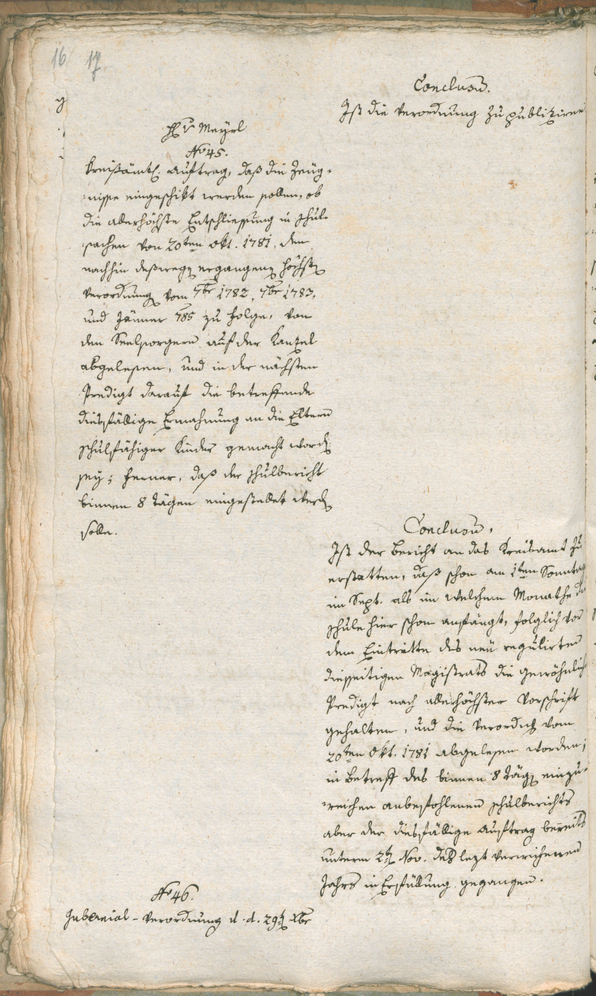 16 17
Conclusum.
Ist die Verordnung zu publiziren
H v Meyrl
No 45.
Kreisämtl. Auftrag, daß die Zeug-
nisse eingeschikt werden sollen, ob
die allerhöchste Entschliessung in Schul-
sachen von 20ten Okt. 1781. den
nachhin deßwegen ergangenen höchsten
Verordnung vom 7br 1782, 7br 1783,
und Jänner 785 zu Folge, von
den Seelsorgern auf der Kanzel
abgelesen, und in der nächsten
Predigt darauf die betreffende
diesfällige Ermahnung an die Eltern
schulfähiger Kinder gemacht worden
sey; ferner, daß der Schulbericht
binnen 8 Tägen eingestellet werden
solle.
Conclusum.
Ist der Bericht an das Kreisamt zu
erstatten, daß schon am 1ten Sonntag
im Sept. als in welchem Monathe die
Schule hier schon anfängt, folglich vor
dem Eintritte des neu regulirten
diesseitigen Magistrats die gewöhnliche
Predigt nach allerhöchster Vorschrift
gehalten, und die Verordng vom
20ten Okt. 1781 abgelesen worden;
in Betreff des binnen 8 Tägen einzu-
reichen anbefohlenen Schulberichts
aber der diesfällige Auftrag bereits
unterm Nov. des lezt verwichenen
Jahrs in Erfüllung gegangen.
No 46.
Gubernial-Verordnung d. d. 29t Xbr